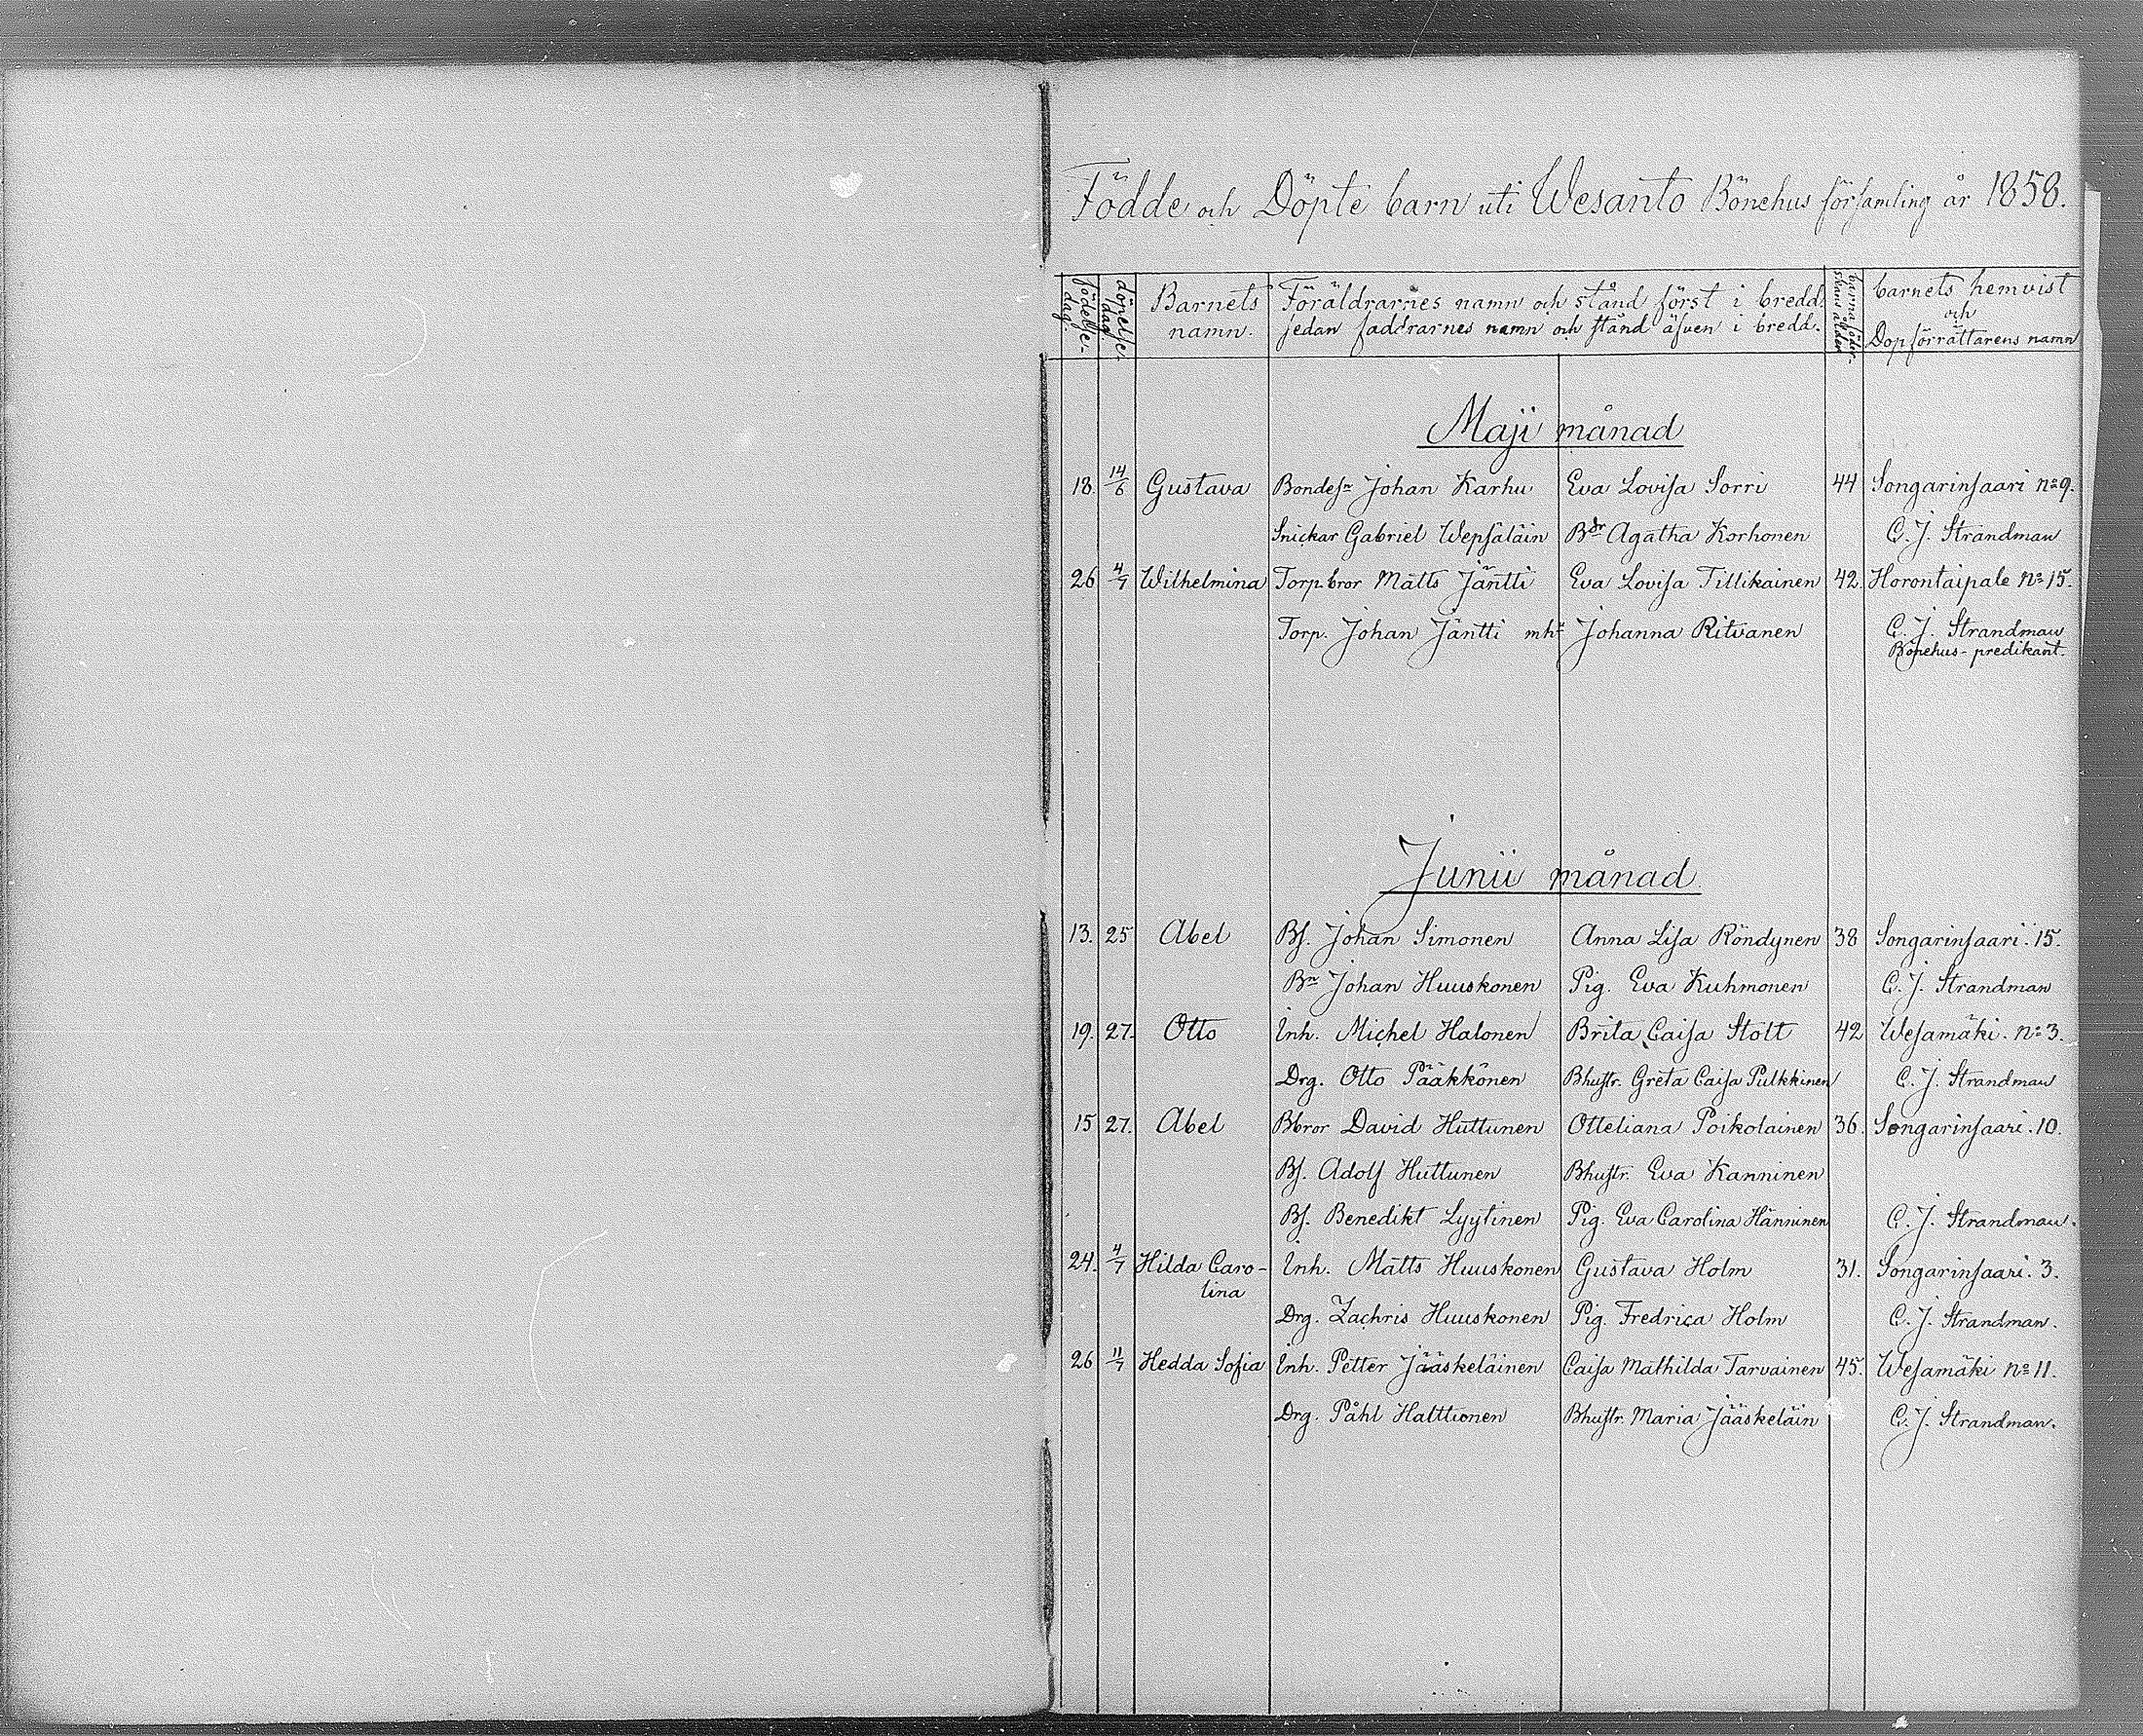 Födde och Döpte barn uti Wesanto Bönehus församling år 1858.
födelse-dag. döpelse-dag. Barnets namn. Föräldrarnes namn och stånd först i bredd, sedan faddrarnes namn och stånd äfven i bredd. barnaföderskans ålder barnets hemvist och Dopförrättarens namn
Maji månad
18. 14/6 Gustava Bondesn Johan Karhu Eva Lovisa Sorri 44 Songarinsaari No 9.
Snickar Gabriel Wepsäläin Bdr Agatha Korhonen C. J. Strandman
26 4/7 Wilhelmina Torp.bror Matts Jäntti Eva Lovisa Tillikainen 42. Horontaipale No 15.
Torp. Johan Jäntti mhu Johanna Ritvanen C. J. Strandman
Bönehus-predikant.
Junii månad
13. 25 Abel Bs. Johan Simonen Anna Lisa Röndynen 38 Songarinsaari. 15.
Bn Johan Huuskonen Pig. Eva Kuhmonen C. J. Strandman
19. 27. Otto Inh. Michel Halonen Brita Caisa Stolt 42 Wesamäki. No 3.
Drg. Otto Pääkkönen Bhustr. Greta Caisa Pulkkinen C. J. Strandman
15 27. Abel Bbror David Huttunen Otteliana Poikolainen 36. Songarinsaari. 10.
Bs. Adolf Huttunen Bhustr. Eva Kanninen
Bs. Benedikt Lyytinen Pig. Eva Carolina Hänninen C. J. Strandman.
24. 4/7 Hilda Caro- Inh. Matts Huuskonen Gustava Holm 31. Songarinsaari. 3.
lina
Drg. Zachris Huuskonen Pig. Fredrica Holm C. J. Strandman.
26 11/7 Hedda Sofia Inh. Petter Jääskeläinen Caisa Mathilda Tarvainen 45. Wesamäki No 11.
Drg. Påhl Halttunen Bhustr. Maria Jääskeläin C. J. Strandman.